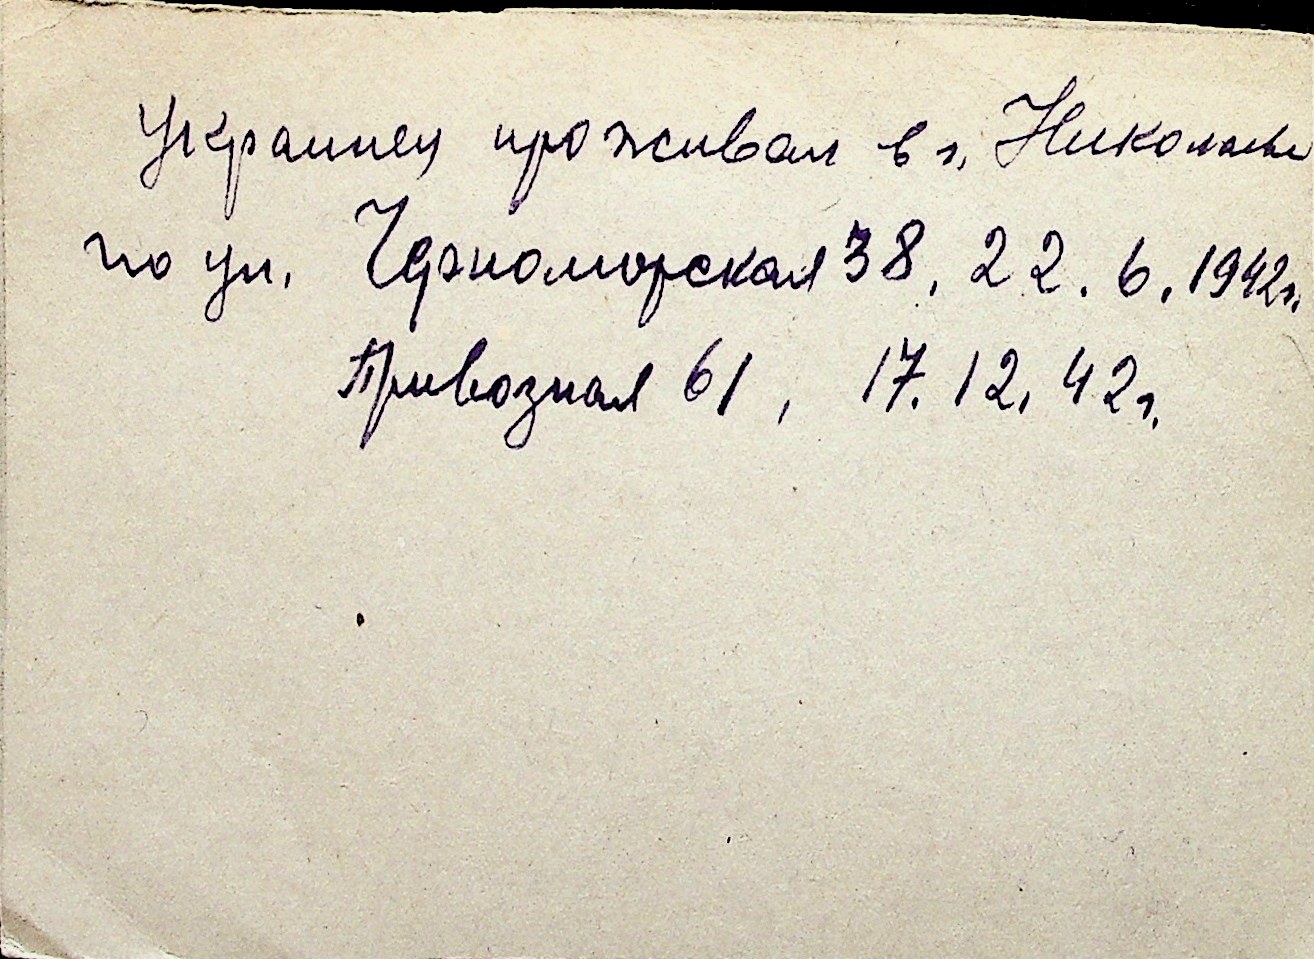 Украинец проживал в г. Николаеве
по ул. Черноморская 38, 22.6.1942г.
Привозная 61, 17.12.42г.